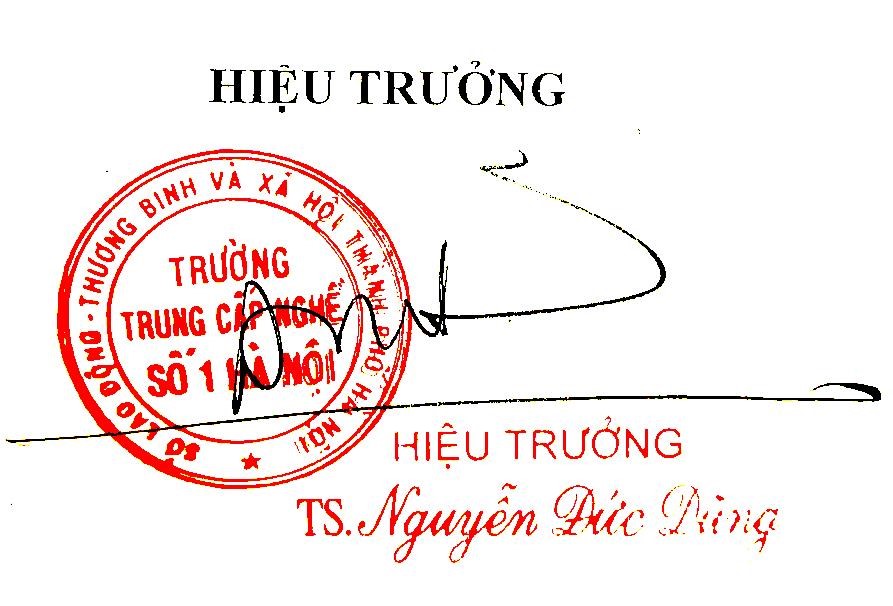 HIỆU TRƯỞNG
SỞ LAO ĐỘNG - THƯƠNG BINH VÀ XÃ HỘI THÀNH PHỐ HÀ NỘI
TRƯỜNG
TRUNG CẤP NGHỀ
SỐ 1 HÀ NỘI
HIỆU TRƯỞNG
TS. Nguyễn Đức Dũng